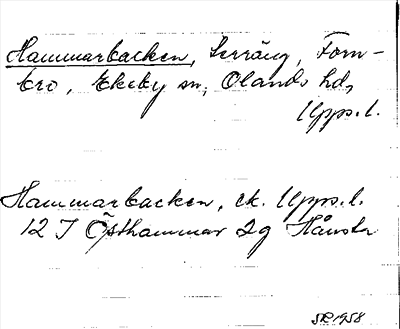 Hammarbacken, terräng, Forn-
bro, Ekeby sn, Olands hd,
Upps.l.
Hammarbacken, ek. Upps.l.
12 I Östhammar 2g
SR 1958